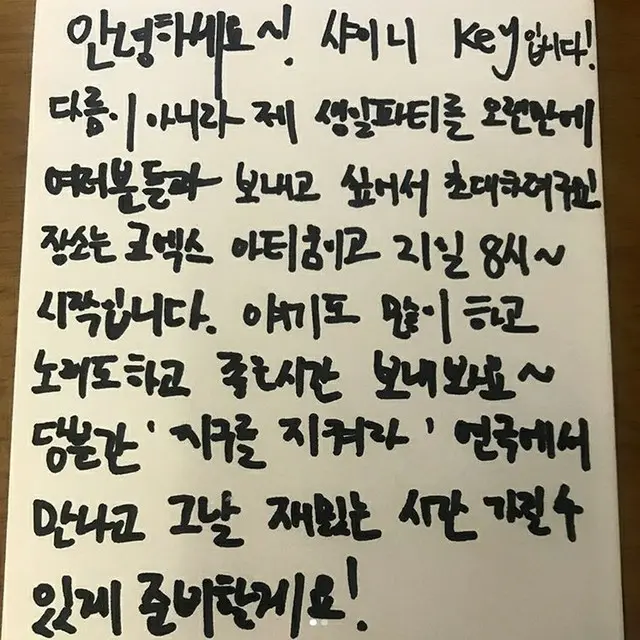 안녕하세요~! 샤이니 key입니다!
다름이 아니라 제 생일파티를 오랜만에
여러분들과 보내고 싶어서 초대하려구요!
장소는 코엑스 아티움이고 21일 8시~
시작입니다. 얘기도 많이 하고
노래도하고 좋은시간 보내봐요~
당분간 '지구를 지켜라' 연극에서
만나고 그날 재밌는 시간 가질 수
있게 준비할게요!